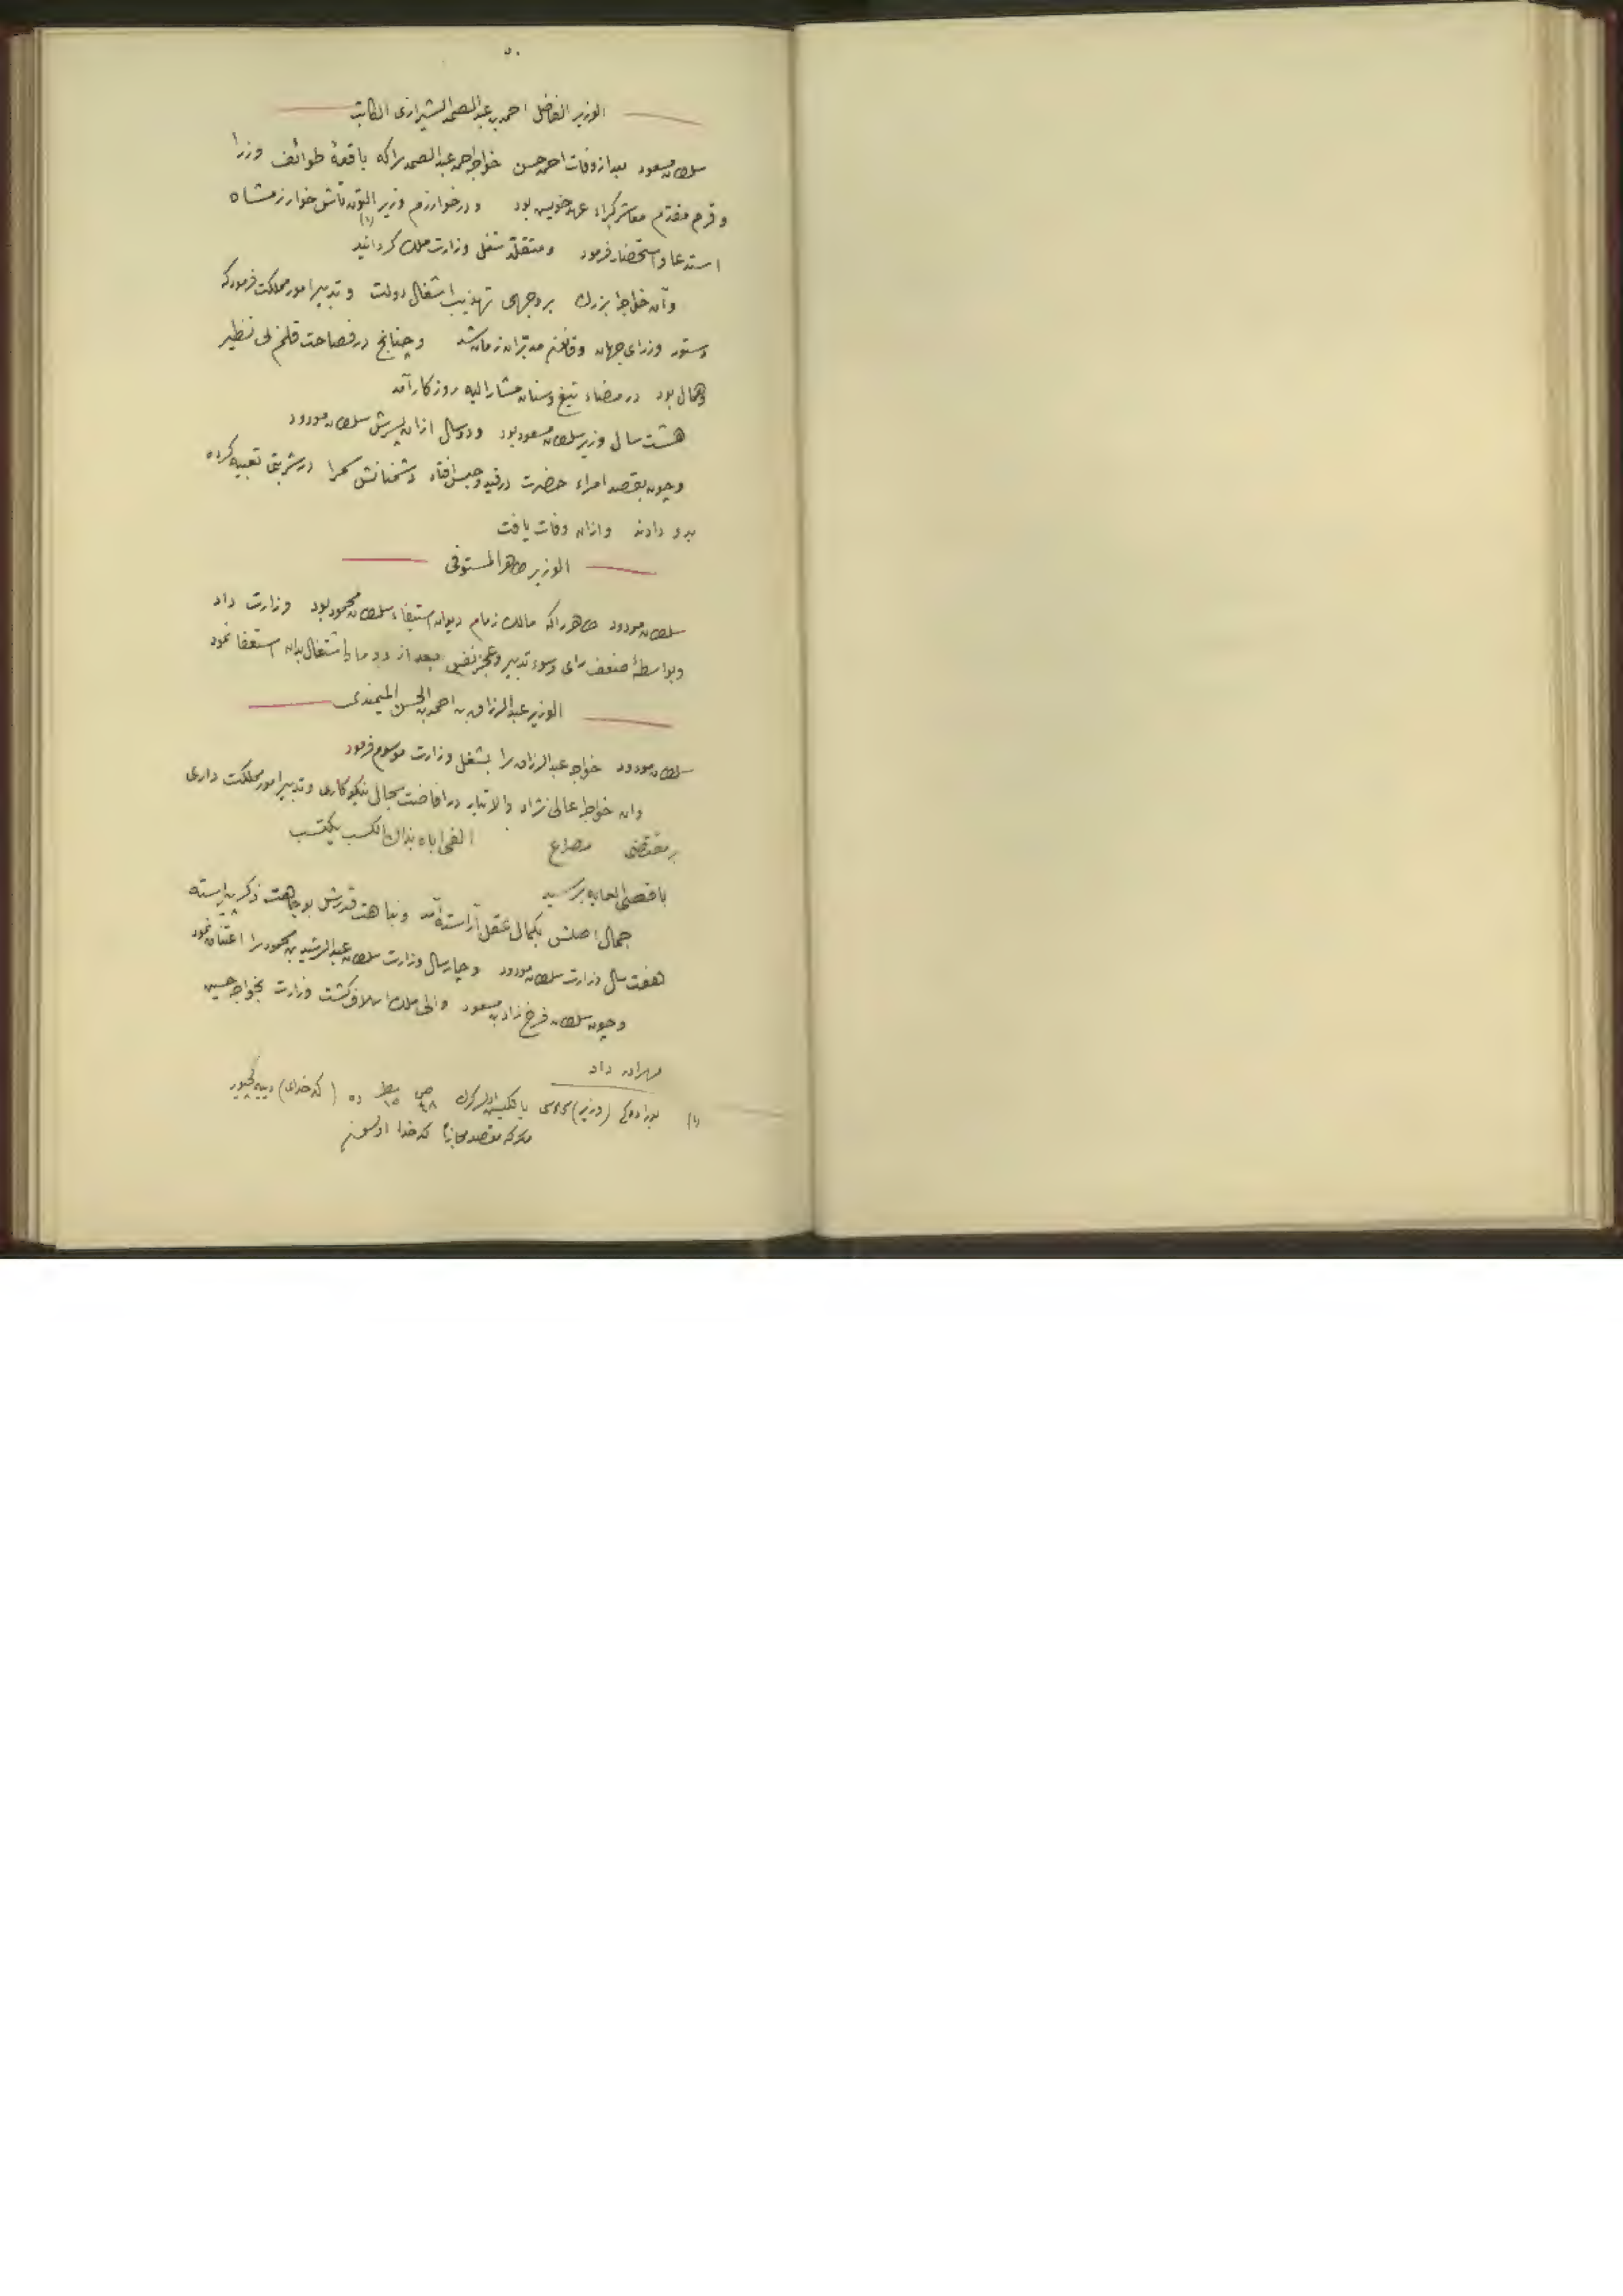 ٥٠
الوزیر الفاضل احمد بن عبدالصمد الشیرازی الکاتب
سلطان مسعود بعد از وفات احمد حسن خواجه احمد عبدالصمد را که باقعهٔ طوائف وزرا
و قرم مقدم معاشر کبراء عهد خویس بود و در خوارزم وزیر التون تاش خوارزمشاه (١)
استدعا و استحضار فرمود و متقلد شغل وزارت ملک کردانید
و آن خواجهٔ بزرک بر وجهی تهذیب اشغال دولت و تدبیر امور مملکت فرمود که
دستور وزرای جهان و قانون مدبران زمان شد و چنانچ در فصاحت قلم بی نظیر
و همال بود در مضاء تیغ و سنان مشار الیه روزکار آمد
هشت سال وزیر سلطان مسعود بود و دو سال ازان پسرش سلطان مودود
و چون بقصد امراء حضرت در قید و حبس افتاد دشمنانش سحرا در شربتی تعبیه کرده
بدو دادند و ازان وفات یافت
الوزیر طاهر المستوفی
سلطان مودود طاهر را که مالک زمام دیوان استیفاء سلطان محمود بود وزارت داد
و بواسطهٔ ضعف رای و سوء تدبیر و عجز نفس بعد از دو ماه اشتغال بدان استعفا نمود
الوزیر عبدالرزاق بن احمد بن الحسن المیمندی
سلطان مودود خواجه عبدالرزاق را بشغل وزارت موسوم فرمود
وان خواجهٔ عالی نژاد والاتبار در افاضت سجال نیکوکاری و تدبیر امور مملکت داری
بر مقتضی مصراع الفی اباه بذاک الکسب یکتسب
باقصی الغایه برسید
جمال اصلش بکمال عقل آراسته آمد و نباهت قدرش بوجاهت ذکر پیراسته
هفت سال وزارت سلطان مودود و چهار سال وزارت سلطان عبدالرشید بن محمود را اعتناق نمود
و چون سلطان فرخ زاد بن مسعود والی ملک اسلاف کشت وزارت بخواجه حسین
مهران داد
(١) بوراده کی (وزیر) ص ٤٨ سطر ١٥ ده (کدخدای)